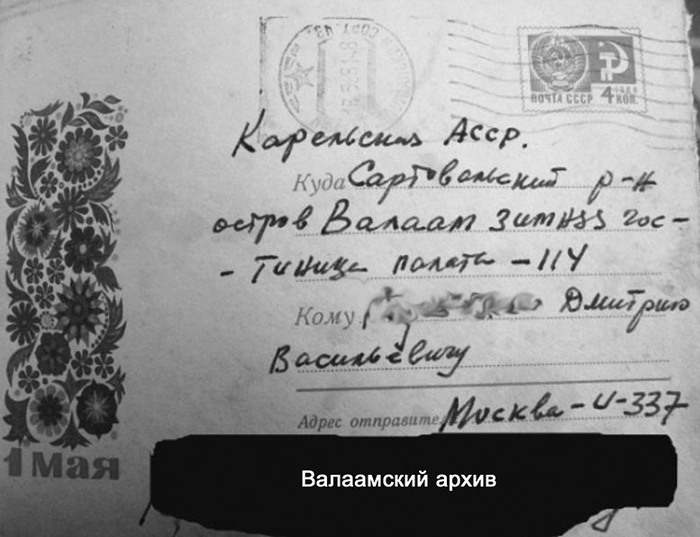 ПОЧТА СССР 4 КОП.
Карельская АССР.
Куда Сартовальский р-н
остров Валаам зимняя гос-
- тиница палата - 114
Кому Дмитрию
Васильевичу
Адрес отправите Москва - И-337
1 Мая
Валаамский архив